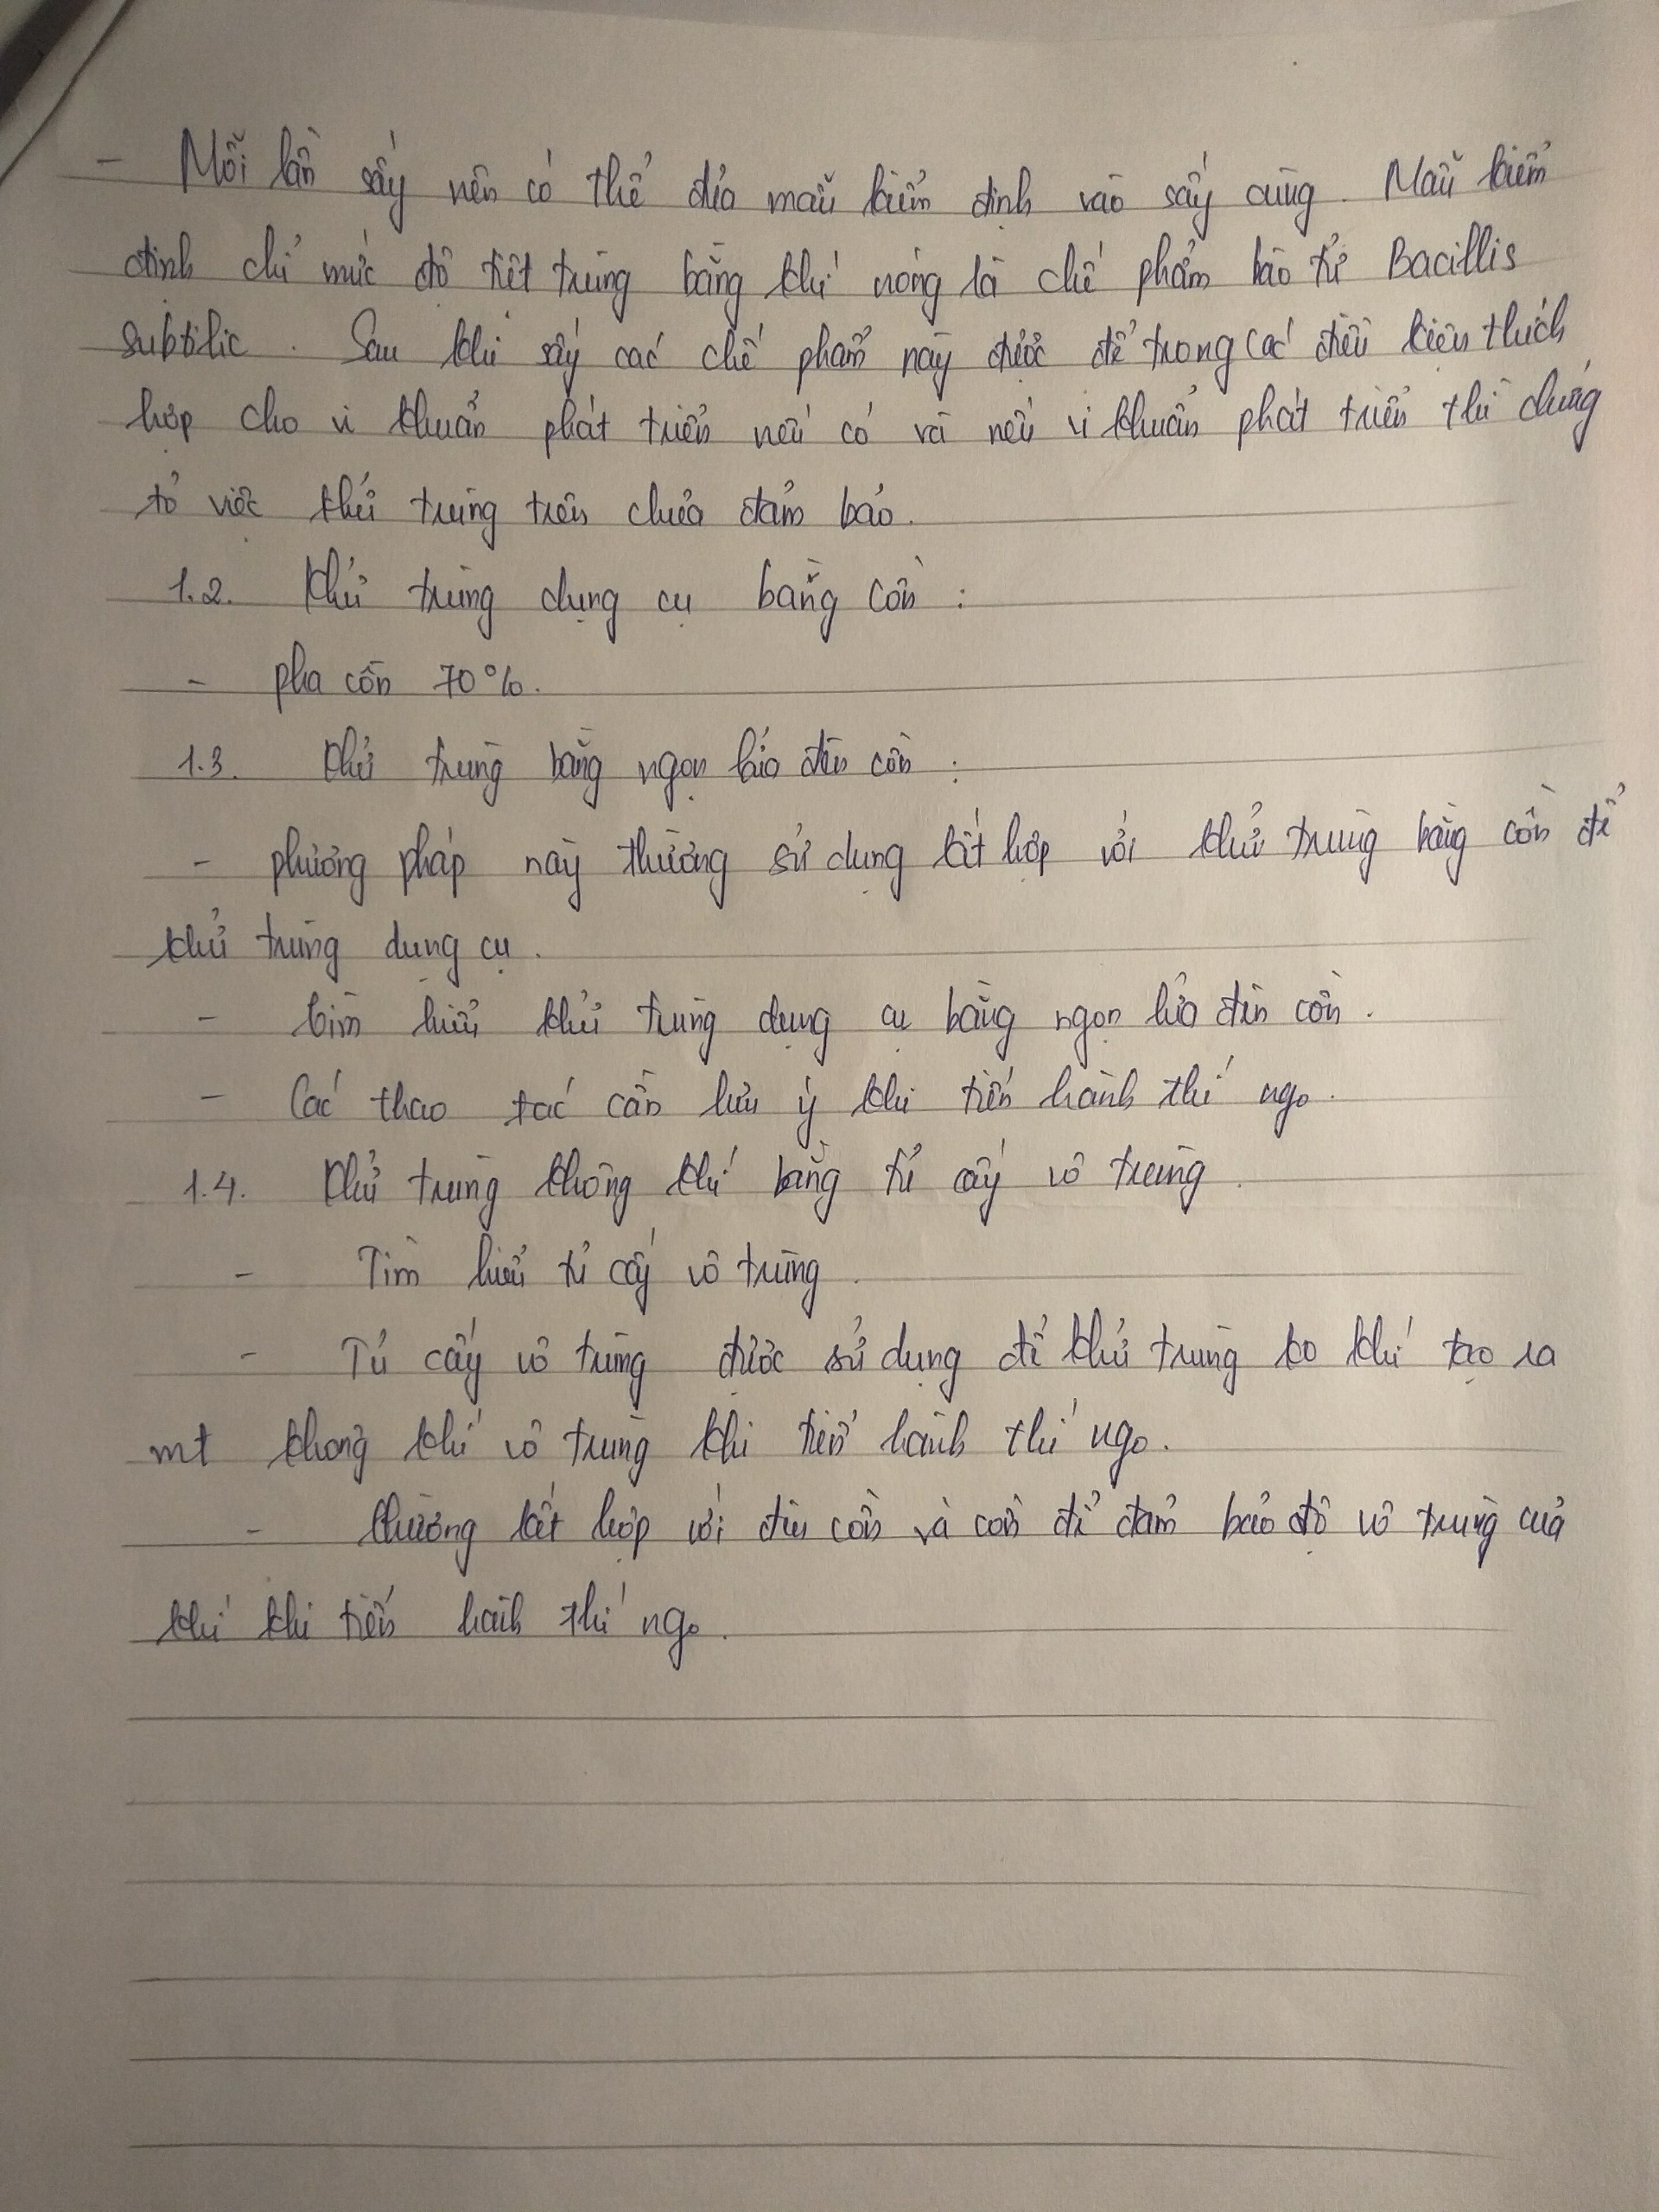 - Mỗi lần sấy nên có thể đưa mẫu kiểm định vào sấy cùng. Mẫu kiểm
định chỉ mức độ tiệt trùng bằng khí nóng là chế phẩm bào tử Bacillis
subtilic. Sau khi sấy các chế phẩm này được để trong các điều kiện thích
hợp cho vi khuẩn phát triển nếu có và nếu vi khuẩn phát triển thì chứng
tỏ việc khử trùng trên chưa đảm bảo.
1.2. Khử trùng dụng cụ bằng cồn :
- pha cồn 70%.
1.3. Khử trùng bằng ngọn lửa đèn cồn :
- phương pháp này thường sử dụng kết hợp với khử trùng bằng cồn để
khử trùng dụng cụ.
- tìm hiểu khử trùng dụng cụ bằng ngọn lửa đèn cồn.
- Các thao tác cần lưu ý khi tiến hành thí ngo.
1.4. Khử trùng không khí bằng tủ cấy vô trùng.
- Tìm hiểu tủ cấy vô trùng.
- Tủ cấy vô trùng được sử dụng để khử trùng ko khí tạo ra
mt không khí vô trùng khi tiến hành thí ngo.
- thường kết hợp với đèn cồn và cồn để đảm bảo độ vô trùng của
khí khi tiến hành thí ngo.